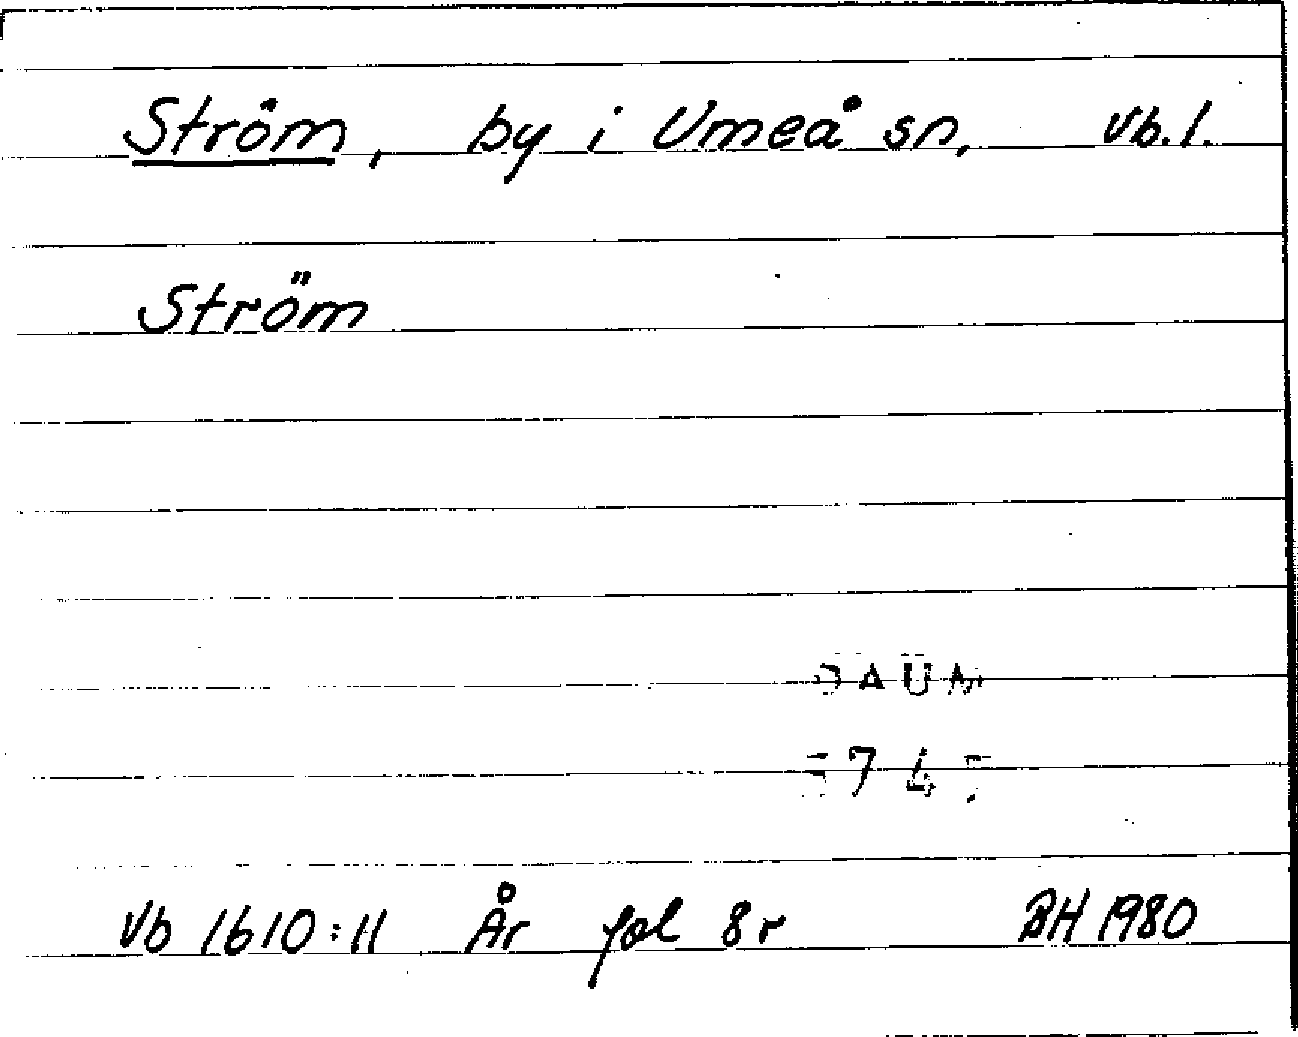 Ström, by i Umeå sn, Vb.l.
Ström
DAUM
Vb 1610:11 År fol 8r BH 1980